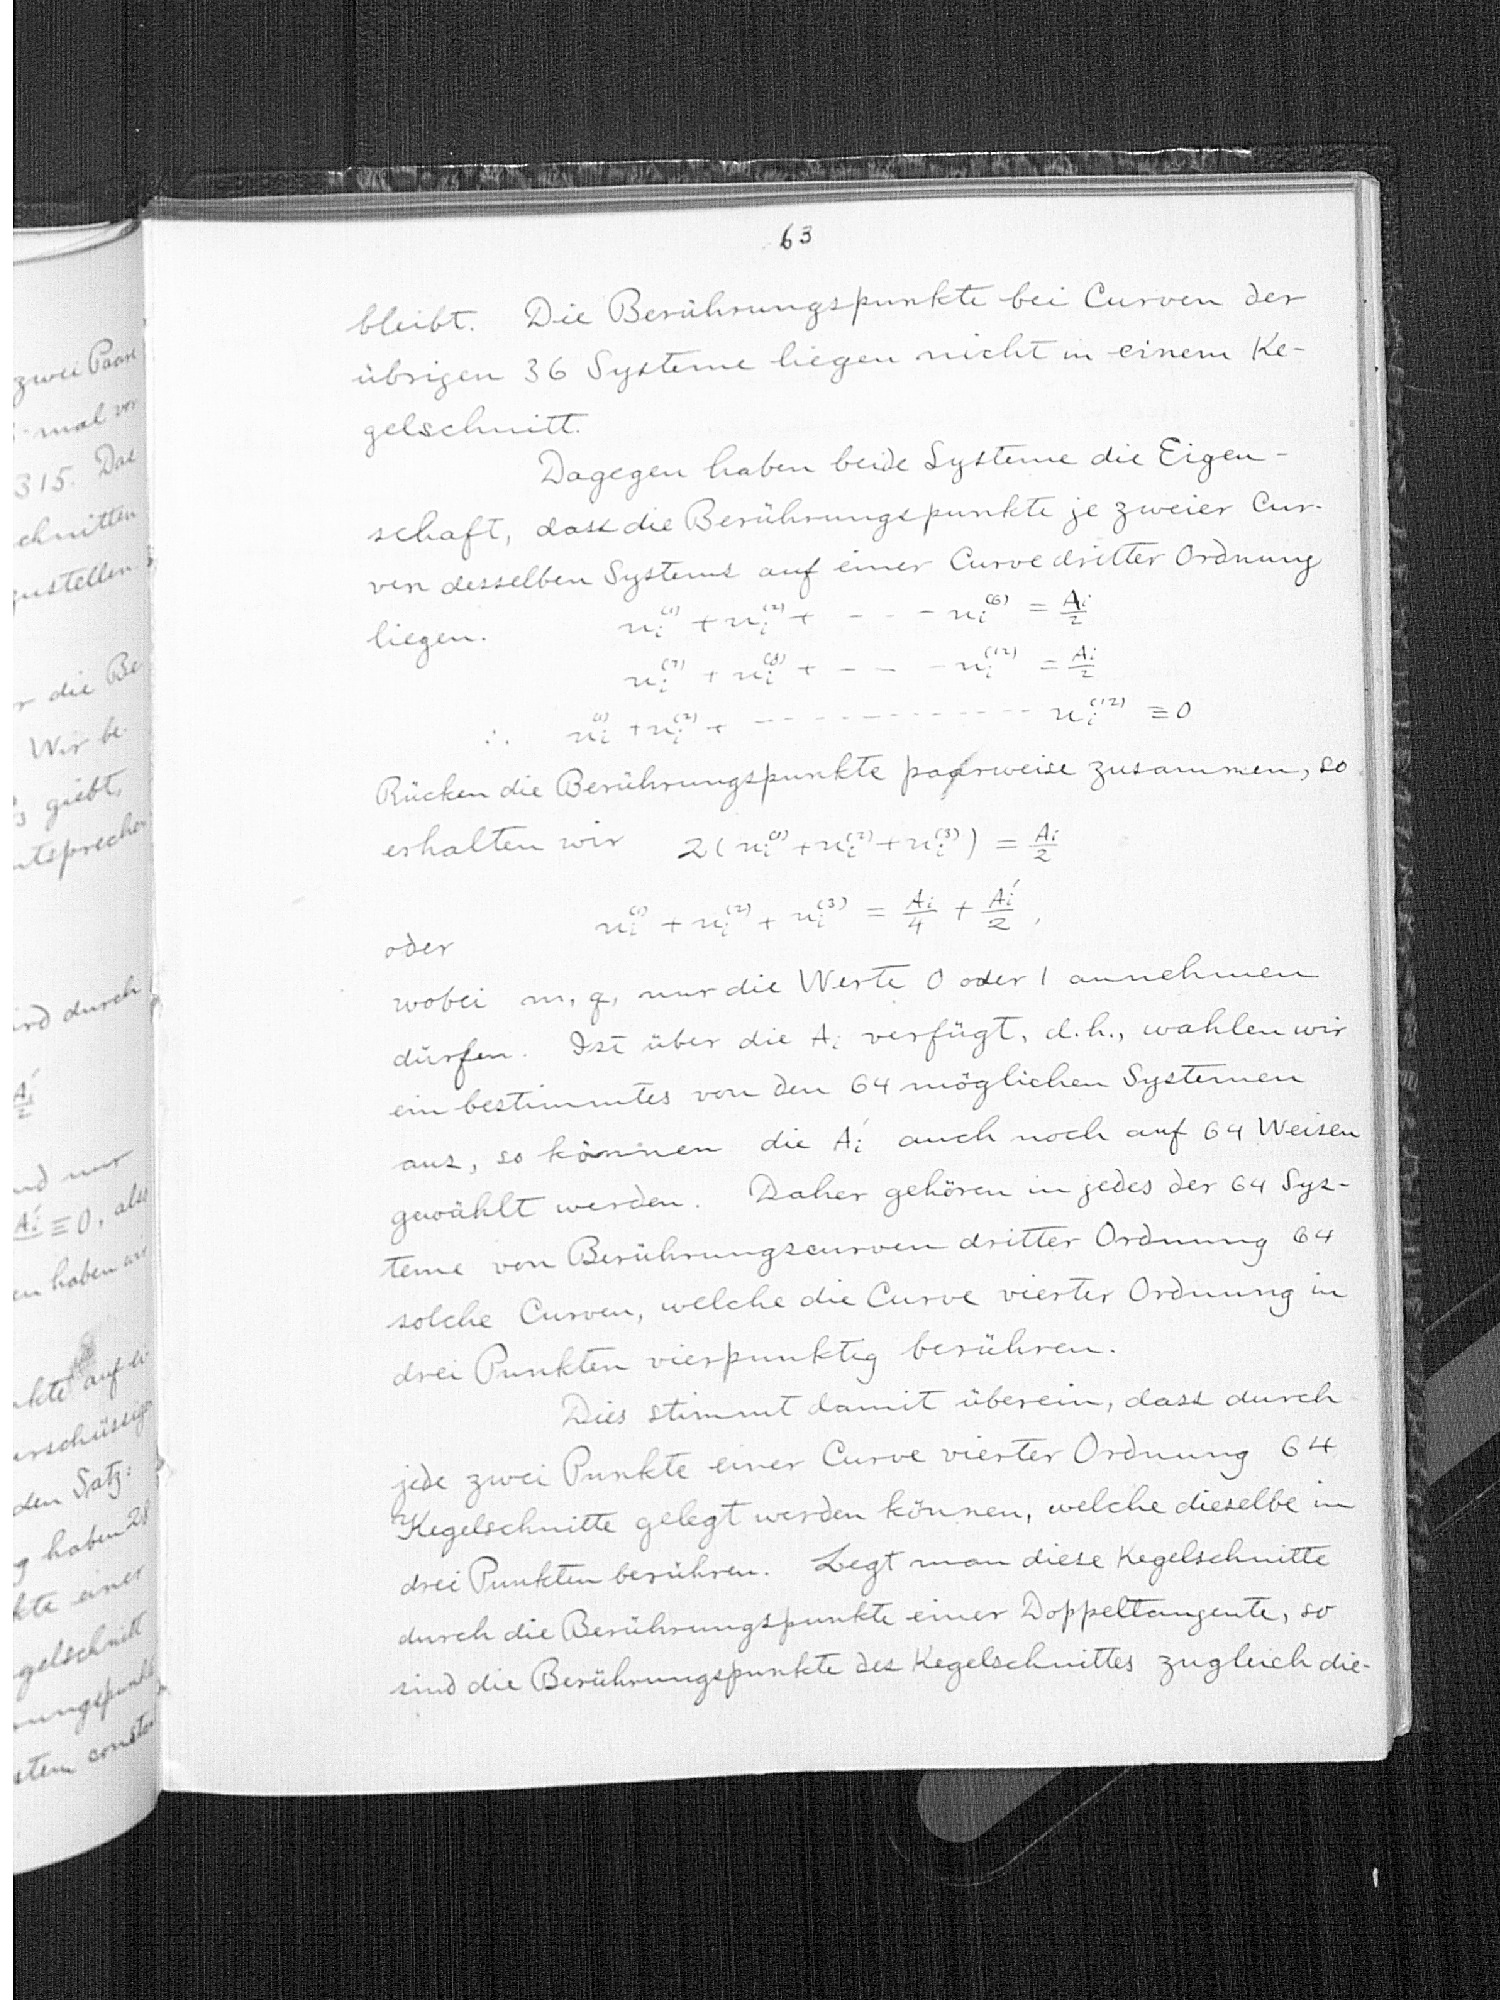 63
bleibt. Die Berührungspunkte bei Curven der
übrigen 36 Systeme liegen nicht in einem Ke-
gelschnitt.
Dagegen haben beide Systeme die Eigen-
schaft, dass die Berührungspunkte je zweier Cur-
ven desselben Systems auf einer Curve dritter Ordnung
liegen. u_i^{(1)} + u_i^{(2)} + - - - u_i^{(6)} = A_i/2
u_i^{(7)} + u_i^{(8)} + - - - u_i^{(12)} = A_i/2
∴ u_i^{(1)} + u_i^{(2)} + - - - - - - - - - - - - u_i^{(12)} ≡ 0
Rücken die Berührungspunkte paarweise zusammen, so
erhalten wir 2(u_i^{(1)} + u_i^{(2)} + u_i^{(3)}) = A_i/2
oder u_i^{(1)} + u_i^{(2)} + u_i^{(3)} = A_i/4 + A_i'/2,
wobei m, q, nur die Werte 0 oder 1 annehmen
dürfen. Ist über die A_i verfügt, d.h., wahlen wir
ein bestimmtes von den 64 möglichen Systemen
aus, so können die A_i' auch noch auf 64 Weisen
gewählt werden. Daher gehören in jedes der 64 Sys-
teme von Berührungscurven dritter Ordnung 64
solche Curven, welche die Curve vierter Ordnung in
drei Punkten vierpunktig berühren.
Dies stimmt damit überein, dass durch
jede zwei Punkte einer Curve vierter Ordnung 64
Kegelschnitte gelegt werden können, welche dieselbe in
drei Punkten berühren. Legt man diese Kegelschnitte
durch die Berührungspunkte einer Doppeltangente, so
sind die Berührungspunkte des Kegelschnittes zugleich die-
zwei Paare
mal vor
315. Das
chnitten
zustellen
r die Be
Wir be-
giebt,
ntsprechen
ird durch
A_i'/2
nd nur
A_i' ≡ 0, also
en haben wir
nkte auf ei-
erschüssig
den Satz:
g haben 28
kte einer
gelschnitt
rungspunkte
stem constan